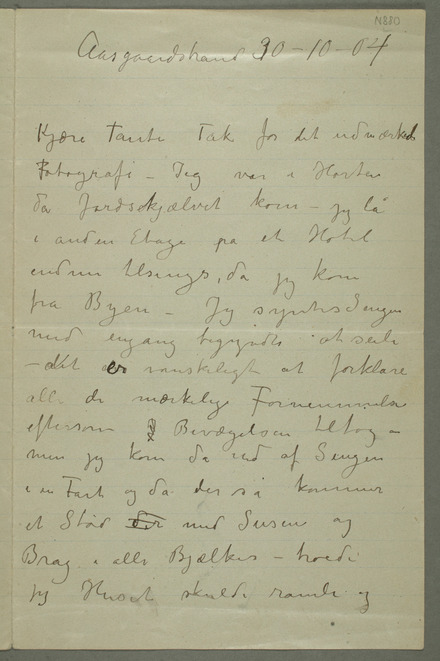 N 880
Aasgaardstrand 30-10-04
Kjære Tante Tak for det udmærkede
Fotografi – Jeg var i Horten
da Jordskjælvet kom – jeg lå
i anden Etage på et Hotel
endnu tilsengs, da jeg kom
fra Byen – Jeg syntes Sengen
med engang begyndte at seile
– det er vanskeligt at forklare
alle de mærkelige Fornemmelser
eftersom Bevægelsen tiltog –
men jeg kom da ud af Sengen
i en Fart og da der så kommer
et Stød der med Susen og
Brag i alle Bjælker – troede
jeg Huset skulde ramle og